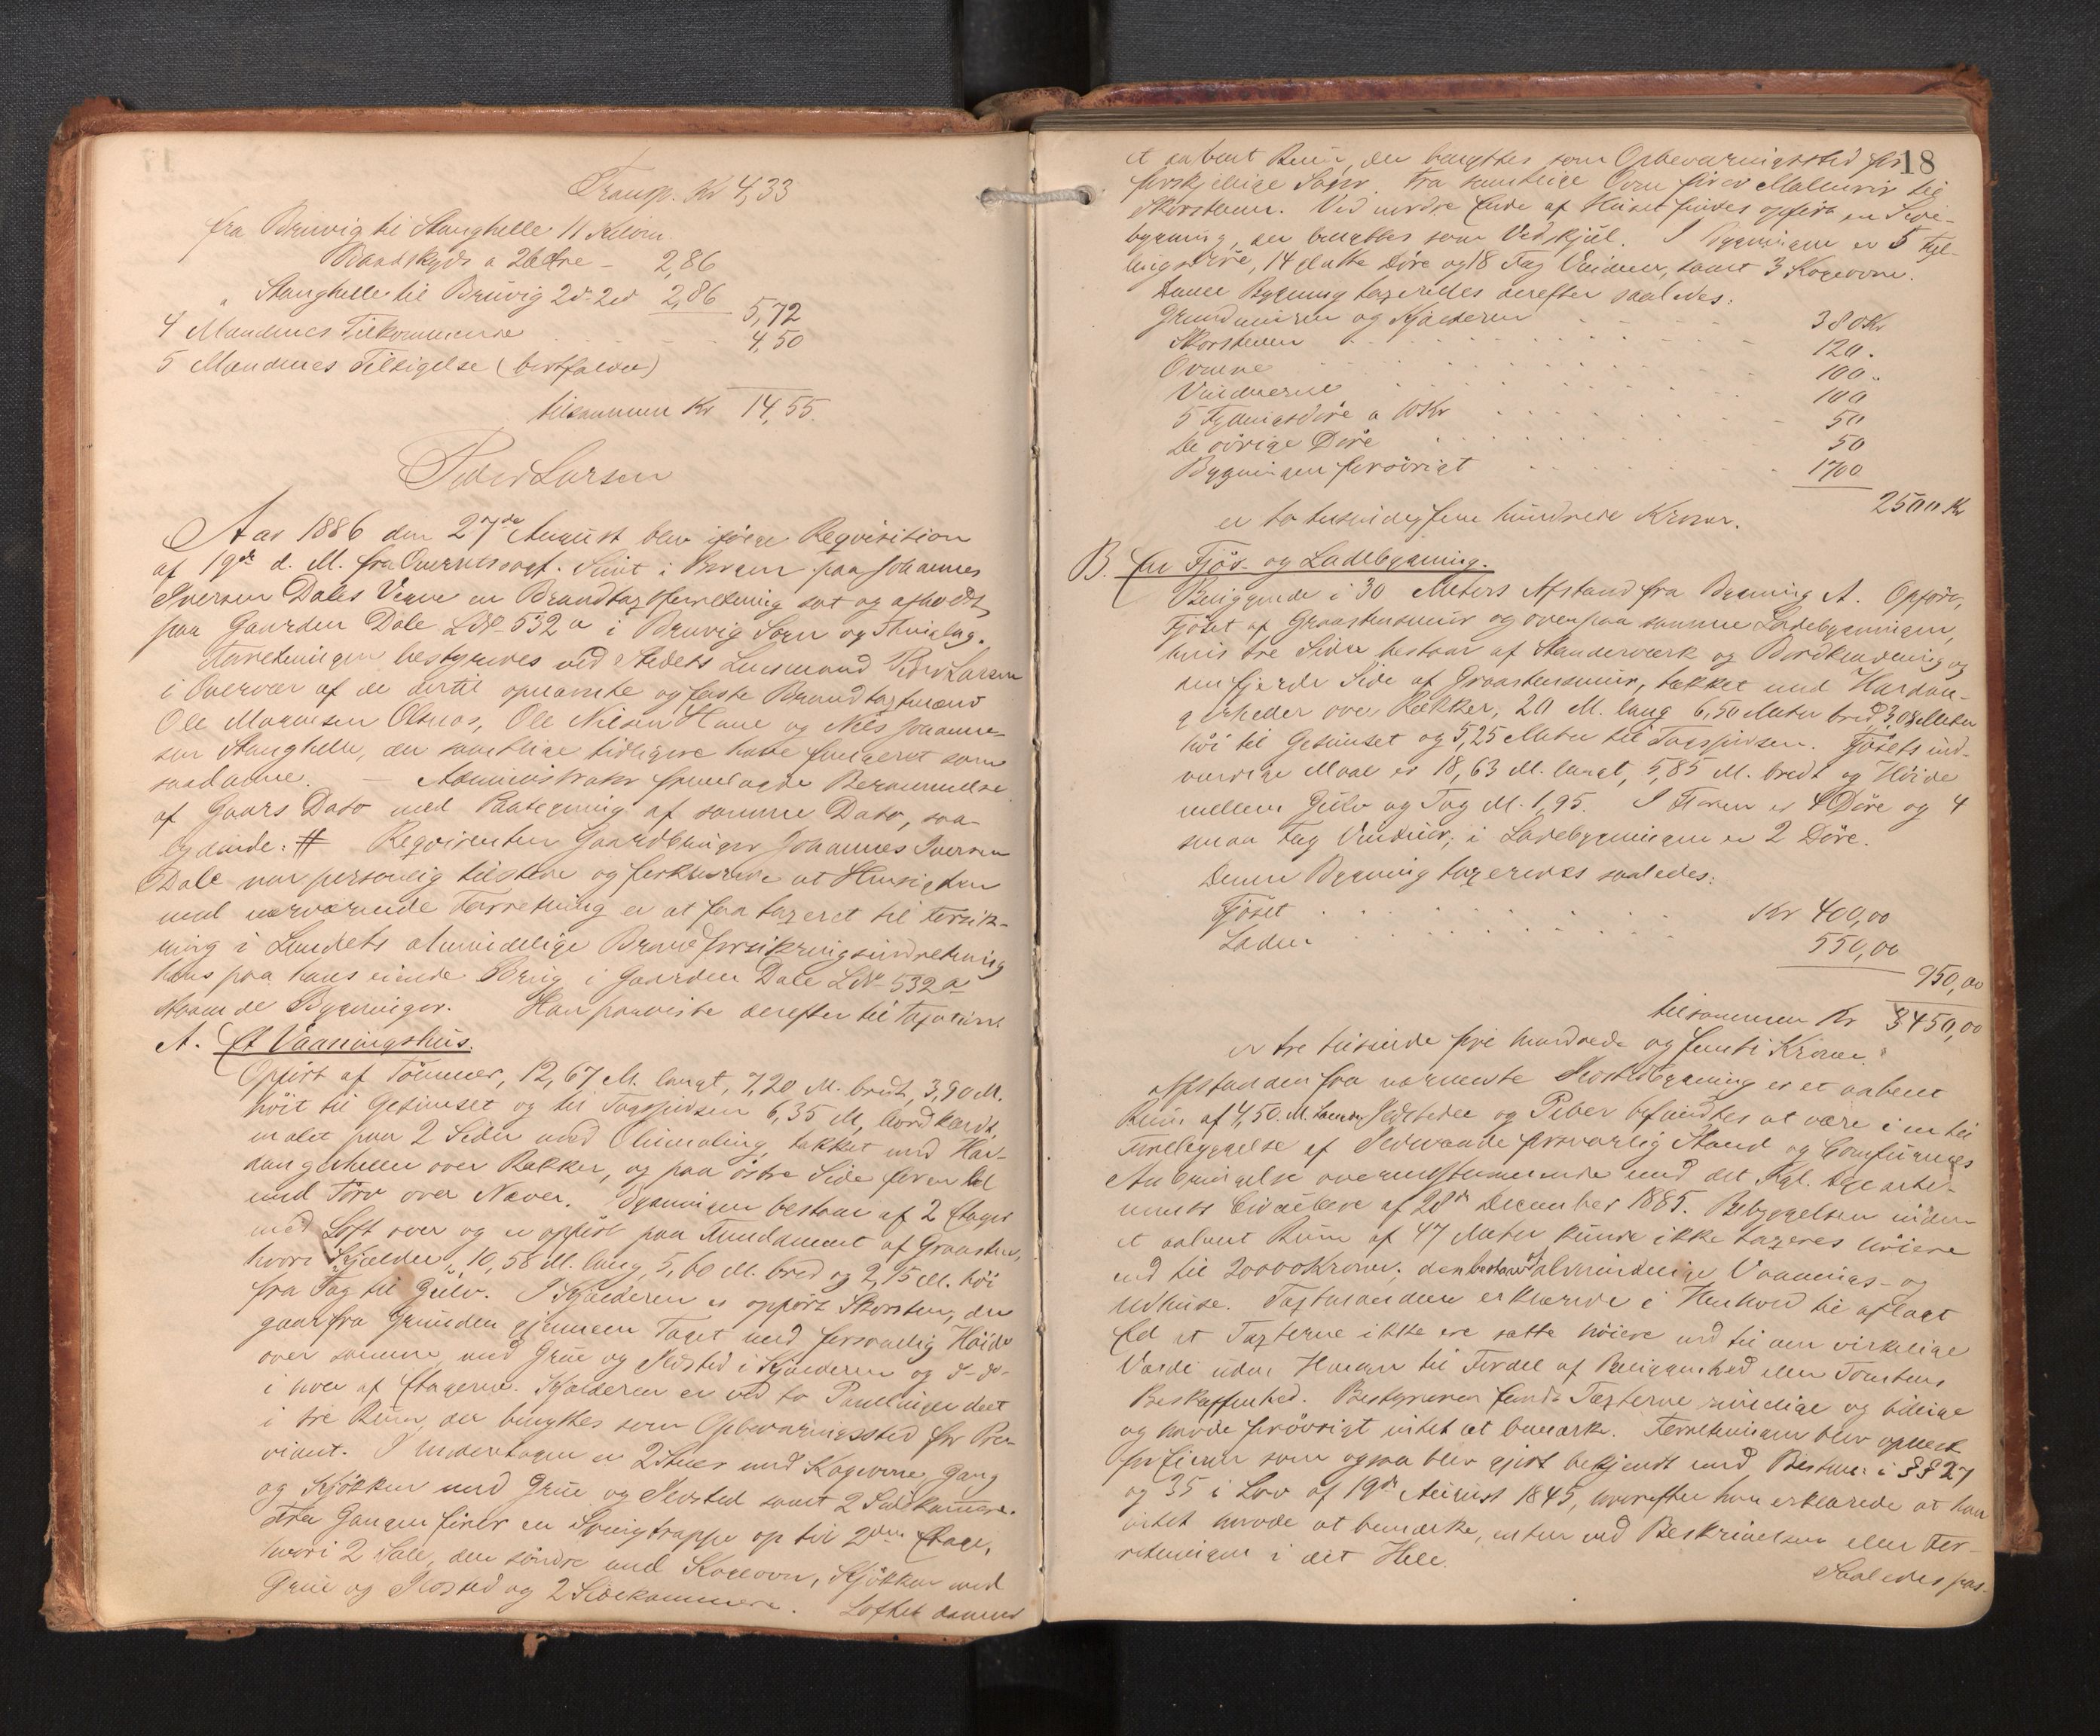 Transp. Kr 4,33
fra Bruvig til Stanghelle 11 Kilom.
Baadskyds a 26 Øre – 2,86
„ Stanghelle til Bruvig 2d. 2d 2,86 5,72
4 Mændenes Tilkommende 4,50
5 Mændenes Tilsigelse (bortfalder)
tilsammen Kr 14,55.
Peder Larsen
Aar 1886 den 27de August blev ifølge Reqvisition
af 19de d. M. fra Overretssagf. Sunt i Bergen paa Johannes
Iversen Dales Vegne en Brandtaxtforretning sat og afholdt
paa Gaarden Dale LNo 532a i Bruvig Sogn og Thinglag.
Forretningen bestyredes ved Stedets Lensmand Peder Larsen
i Overvær af de dertil opnævnte og faste Brandtaxtmænd
Ole Mogensen Olsnæs, Ole Nilsen Hane og Nils Johanne-
sen Stanghelle, der samtlige tidligere have fungeret som
saadanne. – Administrator fremlagde Berammelse
af Gaars Dato med Paategning af samme Dato, saa-
lydende: # Reqvirenten Gaardbruger Johannes Iversen
Dale var personlig tilstede og forklarede at Hensigten
med nærværende Forretning er at faa taxeret til Forsik-
ring i Landets almindelige Brandforsikringsindretning
hans paa hans eiende Brug i Gaarden Dale LNo 532a
staaende Bygninger. Han paaviste derefter til Taxation:
A. Et Vaaningshus.
Opført af Tømmer, 12,67 M. langt, 7,20 M. bredt, 3,90 M.
høit til Gesimset og til Tagspidsen 6,35 M, bordklædt,
malet paa 2 Sider med Oliemaling, tækket med Har-
dangerheller over Rækker, og paa østre Side for en Del
med Tørv over Næver. Bygningen bestaar af 2 Etager
med Loft over og er opført paa Fundament af Graasten,
hvori Kjælder, 10,58 M. lang, 5,60 M. bred og 2,15 M. høi
fra Tag til Gulv. I Kjælderen er opført Skorsten, der
gaar fra Grunden gjennem Taget med forsvarlig Høide
over samme med Grue og Ildsted i Kjælderen og d-do-
i hver af Etagerne. Kjælderen er ved to Panelinger delt
i tre Rum, der benyttes som Opbevaringssted for Pro-
viant. I Underetagen er 2 Stuer med Kogeovne, Gang
og Kjøkken med Grue og Ildsted samt 2 Sidekammere.
Fra Gangen fører en Svingtrappe op til 2den Etage,
hvori 2 Sale, den søndre med Kogeovn, Kjøkken med
Grue og Ildsted og 2 Sidekammere. Loftet danner
18
et aabent Rum, der benyttes som Opbevaringssted for
forskjellige Sager. Fra samtlige Ovne fører Malmrør til
Skorstenen. Ved nordre Ende af Huset findes opført en Side-
bygning, der benyttes som Vedskjul. I Bygningen er 5 Fyl-
lingsdøre, 14 slutte Døre og 18 Fag Vinduer, samt 3 Kogeovne.
Denne Bygning taxeredes derefter saaledes:
Grundmuren og Kjælderen 380 Kr
Skorstenen 120 „
Ovnene 100 „
Vinduerne 100
5 Fyllingsdøre a 10 Kr 50
De øvrige Døre 50
Bygningen forøvrigt 1700
2500 Kr
er to tusinde fem hundrede Kroner.
B. En Fjøs- og Ladebygning.
Beliggende i 30 Meters Afstand fra Bygning A. Opført,
Fjøset af Graastensmur og ovenpaa samme Ladebygningen,
hvis tre Sider bestaar af Standerværk og Bordklædning og
den fjerde Side af Graastensmur, tækket med Hardan-
gerheder over Rækker, 20 M. lang 6,50 Meter bred, 3,08 Meter
høi til Gesimset og 5,25 Meter til Tagspidsen. Fjøsets ind-
vendige Maal er 18,63 M. langt, 5,85 M. bredt og Høide
mellem Gulv og Tag M. 1,95. I Floren er 4 Døre og 4
smaa Fag Vinduer; i Ladebygningen er 2 Døre.
Denne Bygning taxeredes saaledes:
Fjøset Kr 400,00
Laden 550,00
950,00
tilsammen Kr 3450,00
er tre tusinde fire hundrede og femti Kroner.
Afstanden fra nærmeste Ildstedbygning er et aabent
Rum af 4,50 M. Ildsteder og Piber befandtes at være i en til
Forebyggelse af Ildsvaade forsvarlig Stand og Comfurernes
Anbringelse overensstemmende med det Kgl. Departe-
ments Circulære af 28de December 1885. Bebyggelsen inden
et aabent Rum af 47 Meter kunde ikke taxeres høiere
end til 20000 Kroner; den bestaar af almindelige Vaanings- og
Udhuse. Taxtmændene erklærede i Henhold til aflagt
Ed at Taxterne ikke ere satte høiere end til den virkelige
Værdi uden Hensyn til Fordel af Beliggenhed eller Tomtens
Beskaffenhed. Bestyreren fandt Taxterne rimelige og billige
og havde forøvrigt intet at bemærke. Forretningen blev oplæst
for Eieren som ogsaa blev gjort bekjendt med Bestem. i §§ 27
og 35 i Lov af 19de August 1845, hvorefter han erklærede at han
intet havde at bemærke, enten ved Beskrivelsen eller For-
retningen i det Hele.
Saaledes pas-